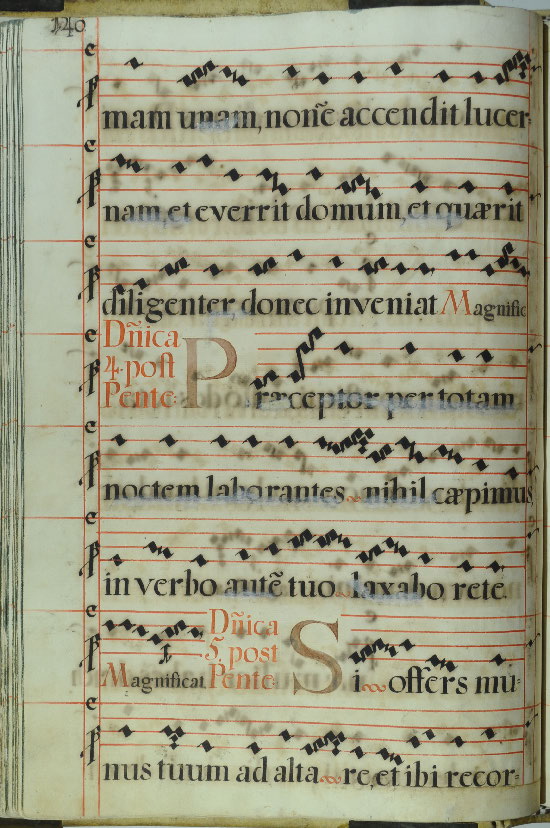 140
mam unam, non̄e accendit lucer-
nam, et everrit domum, et quærit
diligenter donec inveniat Magnific
Dn̄ica
4. post
Pente:
Præceptor per totam
noctem laborantes nihil cæpimus
in verbo autē tuo laxabo rete.
Dn̄ica
5. post
Magnificat Pente:
Si offers mu-
nus tuum ad altare, et ibi recor-